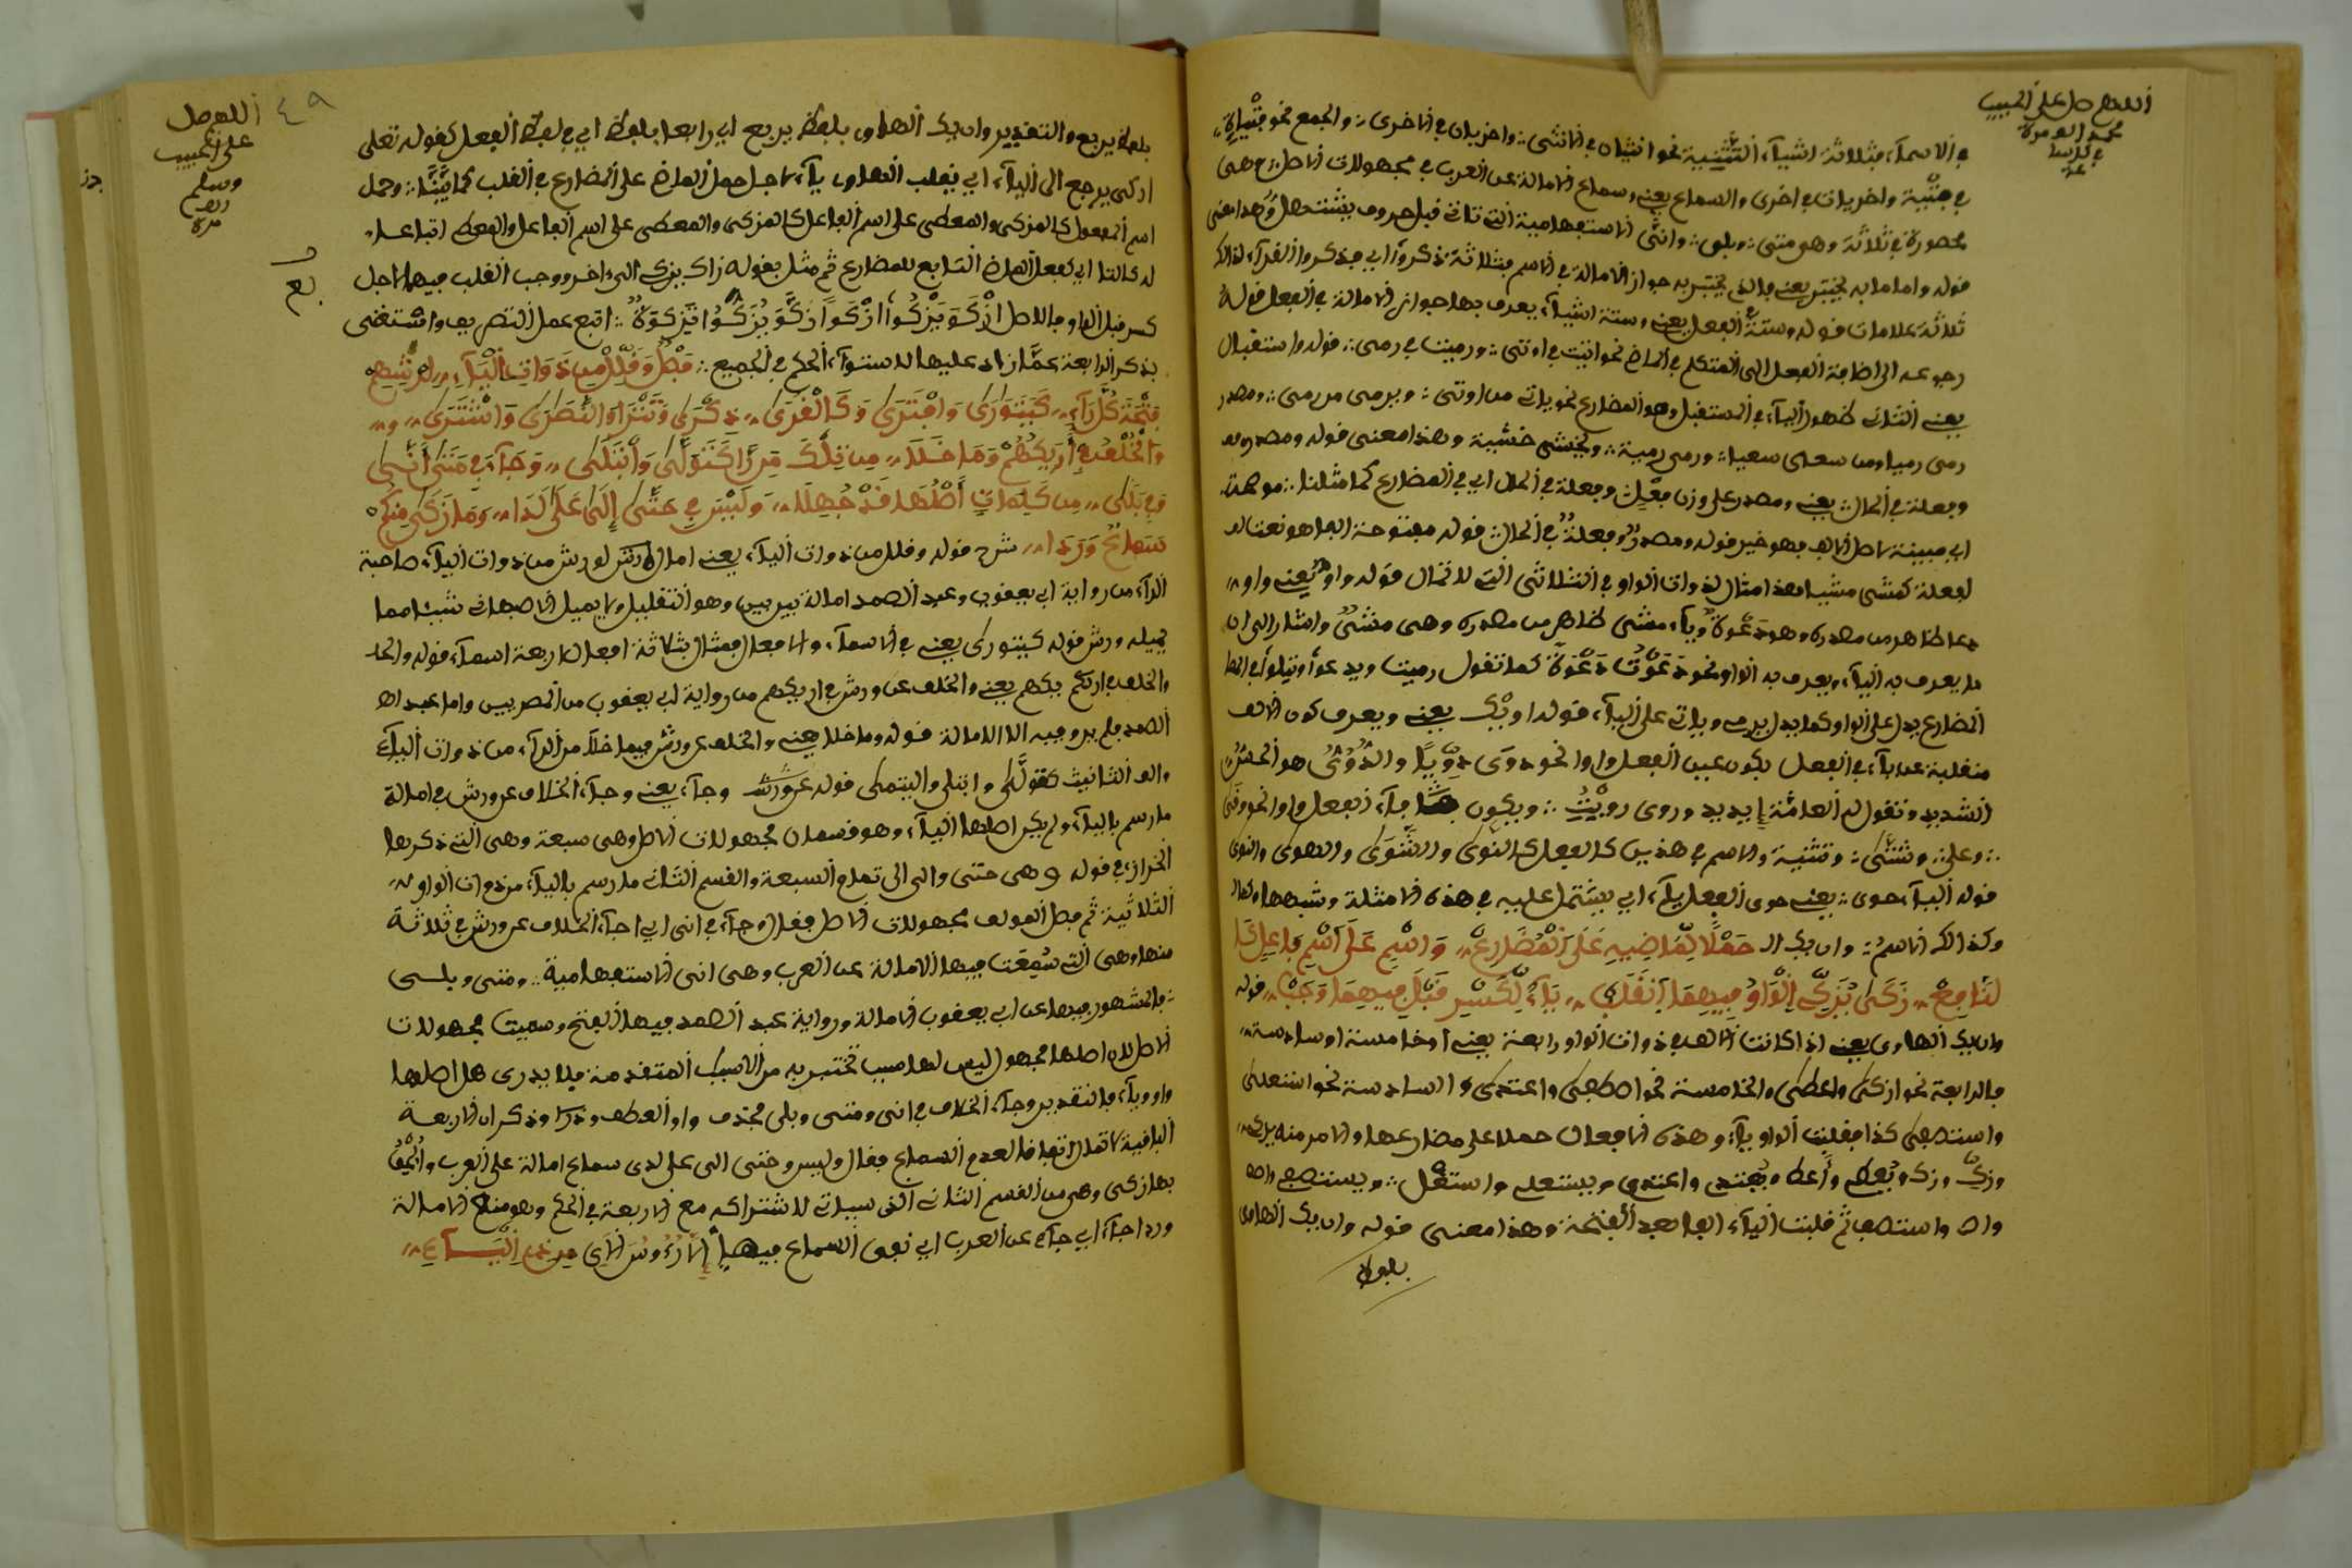 اللهم صل على الحبيب
محمد الف مرة
في الاسماء بثلاثة اشياء التثنية نحو انثيان في الانثى واخريان في الاخرى والجمع نحو فتية
في فتية واخريات في اخرى والسماع يعني وسماع الامالة عن العرب في مجهولات الاصل وهي
محصورة في ثلاثة وهو متى وبلى وانى الاستفهامية التي تاتي قبل حروف
قوله واما ما به يختبر يعني والذي يختبر به جواز الامالة في الاسم بثلاثة ذكروا
ثلاثة علامات قوله وستة الفعل يعني وستة اشياء يعرف بها جواز الامالة في الفعل قوله
رجوعه الى اضافة الفعل الى المتكلم في الماضي نحو اتيت في اوتى ورميت في رمى قوله واستقبال
يعني الثاني ظهور الياء في المستقبل وهو المضارع نحو ياتي من اوتى ويرمي من رمى ومصدر
رمى رميا ومن سعى سعيا ورمى رمية ويخشى خشية وهذا معنى قوله ومصدر
وفعلة في الحال يعني ومصدر على وزن فعل وفعلة في الحال اي في المضارع كما مثلنا
اي مبينة لاصل الالف فهو خبر قوله ومصدر وفعلة في الحال قوله مفتوحة الفا هو نعت
لفعلة كمشى مشيا وهذا مثال لذوات الواو في الثلاثي التي لا تمال قوله واو يعني واو
دعا ظاهر من مصدره وهو دعوة وياء مشى ظاهر من مصدره وهي مشي واشار الى ان
ما يعرف به الياء ويعرف به الواو نحو دعوت دعوة كما تقول رميت ويدعوا ويتلوا
المضارع يدل على الواو كما يدل يرمي وياتي على الياء قوله او يك يعني ويعرف كون الالف
منقلبة عن ياء في الفعل بكون عين الفعل واوا نحو دوى دويا
الشديد وتقول له العامة وروى رويت ويكون فاء الفعل واوا نحو
وعلى وشتى وتثنية والاسم في هذين كالفعل كالنوى والشوى والهوى والنوى
قوله الياء حوى يعني حوى الفعل ياء اي يشتمل عليه في هذه الامثلة وشبهها
وكذالك الاسم وان يك ال حملا لماضيه على المضارع واسم على اسم فاعل
زكى يزكي الواو فيهما انقلب ياء لكسر قبل فيهما وجب قوله
وان يك الهاوي يعني اذا كانت الالف في ذوات الواو رابعة يعني او خامسة او سادسة
فالرابعة نحو ازكى واعطى والخامسة نحو اصطفى واعتدى والسادسة نحو استعلى
واستصفى كذا فقلبت الواو ياء وهذه الافعال حملا على مضارعها والامر منه
وزك ويعطي وأعط ويعتدي واعتدي ويستعلي واستعل ويستصفي
واستصف ثم قلبت الياء الفا بعد الفتحة وهذا معنى قوله وان يك الهاوي
بلفظ
٤٩
اللهم صل
على الحبيب
وسلم
الف
مرة
بلفظ يربع والتقدير وان يك الهاوي بلفظ يربع اي رابعا بلفظ اي في لفظ الفعل كقوله تعلى
ازكى يرجع الى الياء اي يقلب الهاوي ياء لاجل حمل الماضي على المضارع في القلب كما بينا وحمل
اسم المفعول كالمزكى والمعطى على اسم الفاعل كالمزكي والمعطي على اسم الفاعل والمعطي اتباعا
له كالتا اي كفعل الماضي التابع للمضارع ثم مثل بقوله زاك يزكي الى اخر ووجب القلب فيهما لاجل
كسر قبل الواو والاصل ازكو يزكوا ازكوا زكو يزكوا تزكوة اتبع عمل التصريف واستغنى
بذكر الرابعة عما زاد عليها لاستواء الحكم في الجميع فصل وقلل من ذوات الياء لورشهم
فتحة كل راء كيتوارى وافترى وكالقرى ذكرى وتترا والنصرى واشترى
والخلف في اريكهم وما خلا من تلك من را كتولى وابتلى وجاء في متى انى
وفي بلى من كلمات اصلها قد جهلا وليس في حتى الى على لدا وما زكى منكم
سماع وردا شرح قوله وقلل من ذوات الياء يعني امال لورش من ذوات الياء صاحبة
الراء من رواية ابي يعقوب وعبد الصمد امالة بين بين وهو التقليل ولا يميل الاصبهاني شيئا مما
يميله ورش قوله كيتورى يعني في الاسماء والافعال فمثال بثلاثة افعال واربعة اسماء قوله
والخلف في اريكهم يعني والخلف عن ورش في اريكهم من رواية ابي يعقوب من المصريين واما عبد
الصمد فلم يرو فيه الا الامالة قوله وما خلا يعني والخلف عن ورش فيما خلا من الراء من ذوات الياء
والف التانيث كتولى وابتلى واليتمى قوله وجاء يعني وجاء الخلاف عن ورش في امالة
ما رسم بالياء ولم يكن اصلها الياء وهو قسمان مجهولات الاصل وهي سبعة وهي التي ذكرها
الخراز في قوله وهي حتى والى الى تمام السبعة والقسم الثاني ما رسم بالياء من ذوات الواو
الثلاثية ثم فصل المولف مجهولات الاصل فقال وجاء في انى اي جاء الخلاف عن ورش في ثلاثة
منها وهي التي سمعت فيها الامالة عن العرب وهي انى الاستفهامية ومتى وبلى
فالمشهور فيها عن ابي يعقوب الامالة ورواية عبد الصمد فيها الفتح وسميت مجهولات
الاصل لان اصلها مجهول ليس لها سبب تختبر به من الاسباب المتقدمة فلا يدرى هل اصلها
واو وياء والتقدير وجاء الخلاف في انى ومتى وبلى محذف واو العطف وذكر ان الاربعة
الباقية لا تمال اتفاقا لعدم السماع فقال وليس وحتى الى على لدى سماع امالة على العرب
بها زكى وهي من القسم الثاني الذي سياتي لاشتراكه مع الاربعة في الحكم وهو منع الامالة
وردا جاء اي جاء عن العرب اي نفى السماع فيها إلا رءوس الاي